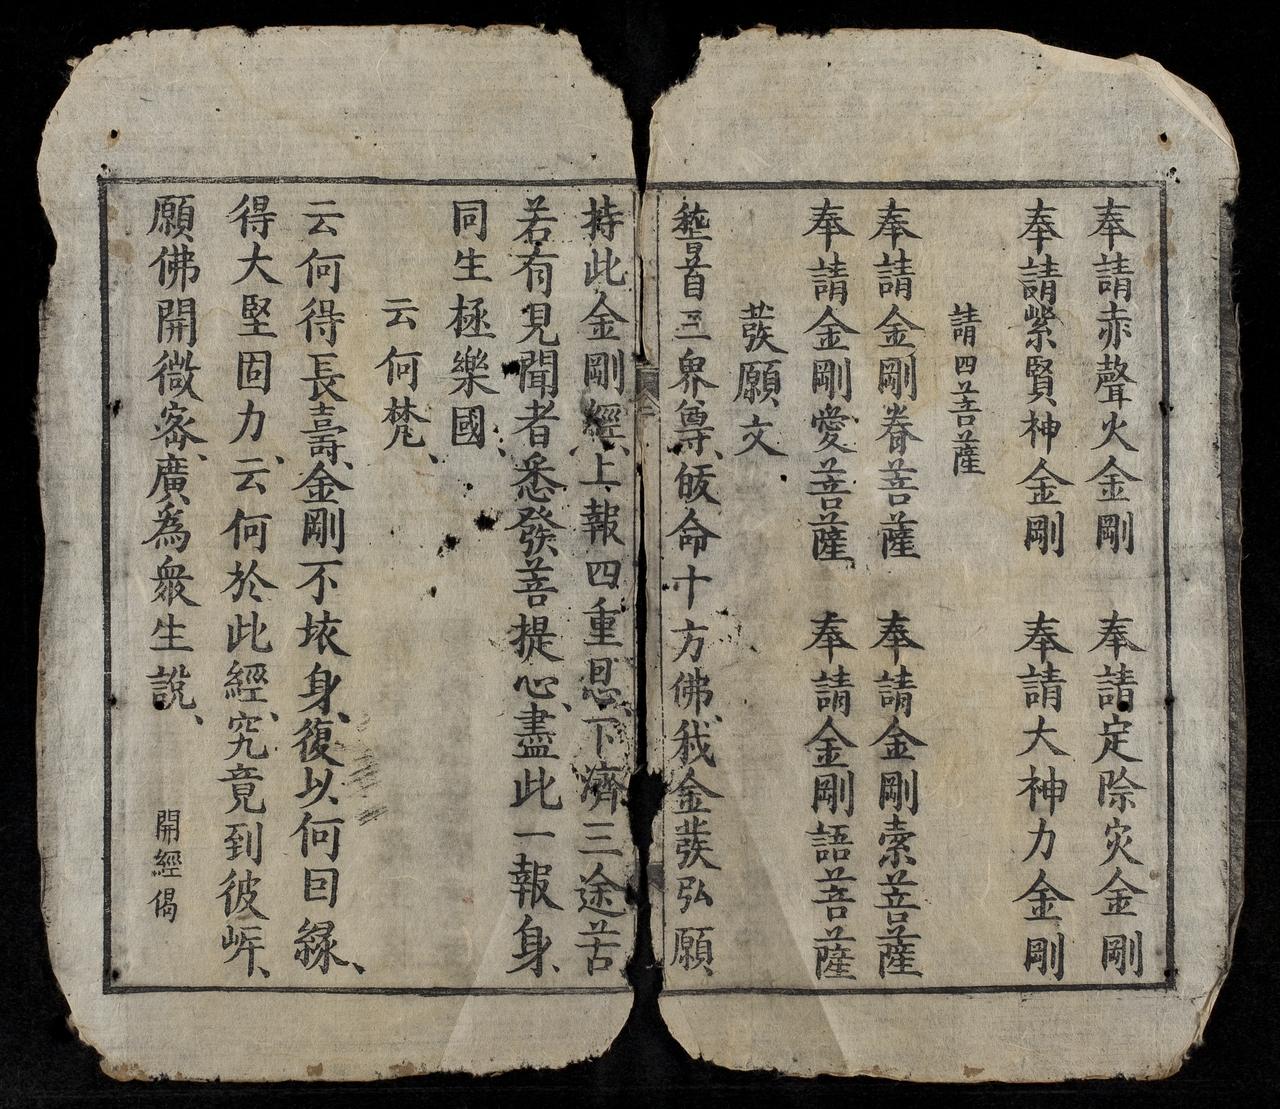 奉請赤聲火金剛　奉請定除灾金剛
奉請紫賢神金剛　奉請大神力金剛
請四菩薩
奉請金剛眷菩薩　奉請金剛索菩薩
奉請金剛愛菩薩　奉請金剛語菩薩
發願文
稽首三界尊、皈命十方佛、我金發弘願
持此金剛經、上報四重恩、下濟三途苦
若有見聞者、悉發菩提心、盡此一報身、
同生極樂國、
云何梵、
云何得長壽、金剛不坏身、復以何因緣、
得大堅固力、云何於此經、究竟到彼岸、
願佛開微密、廣為衆生說、　開經偈